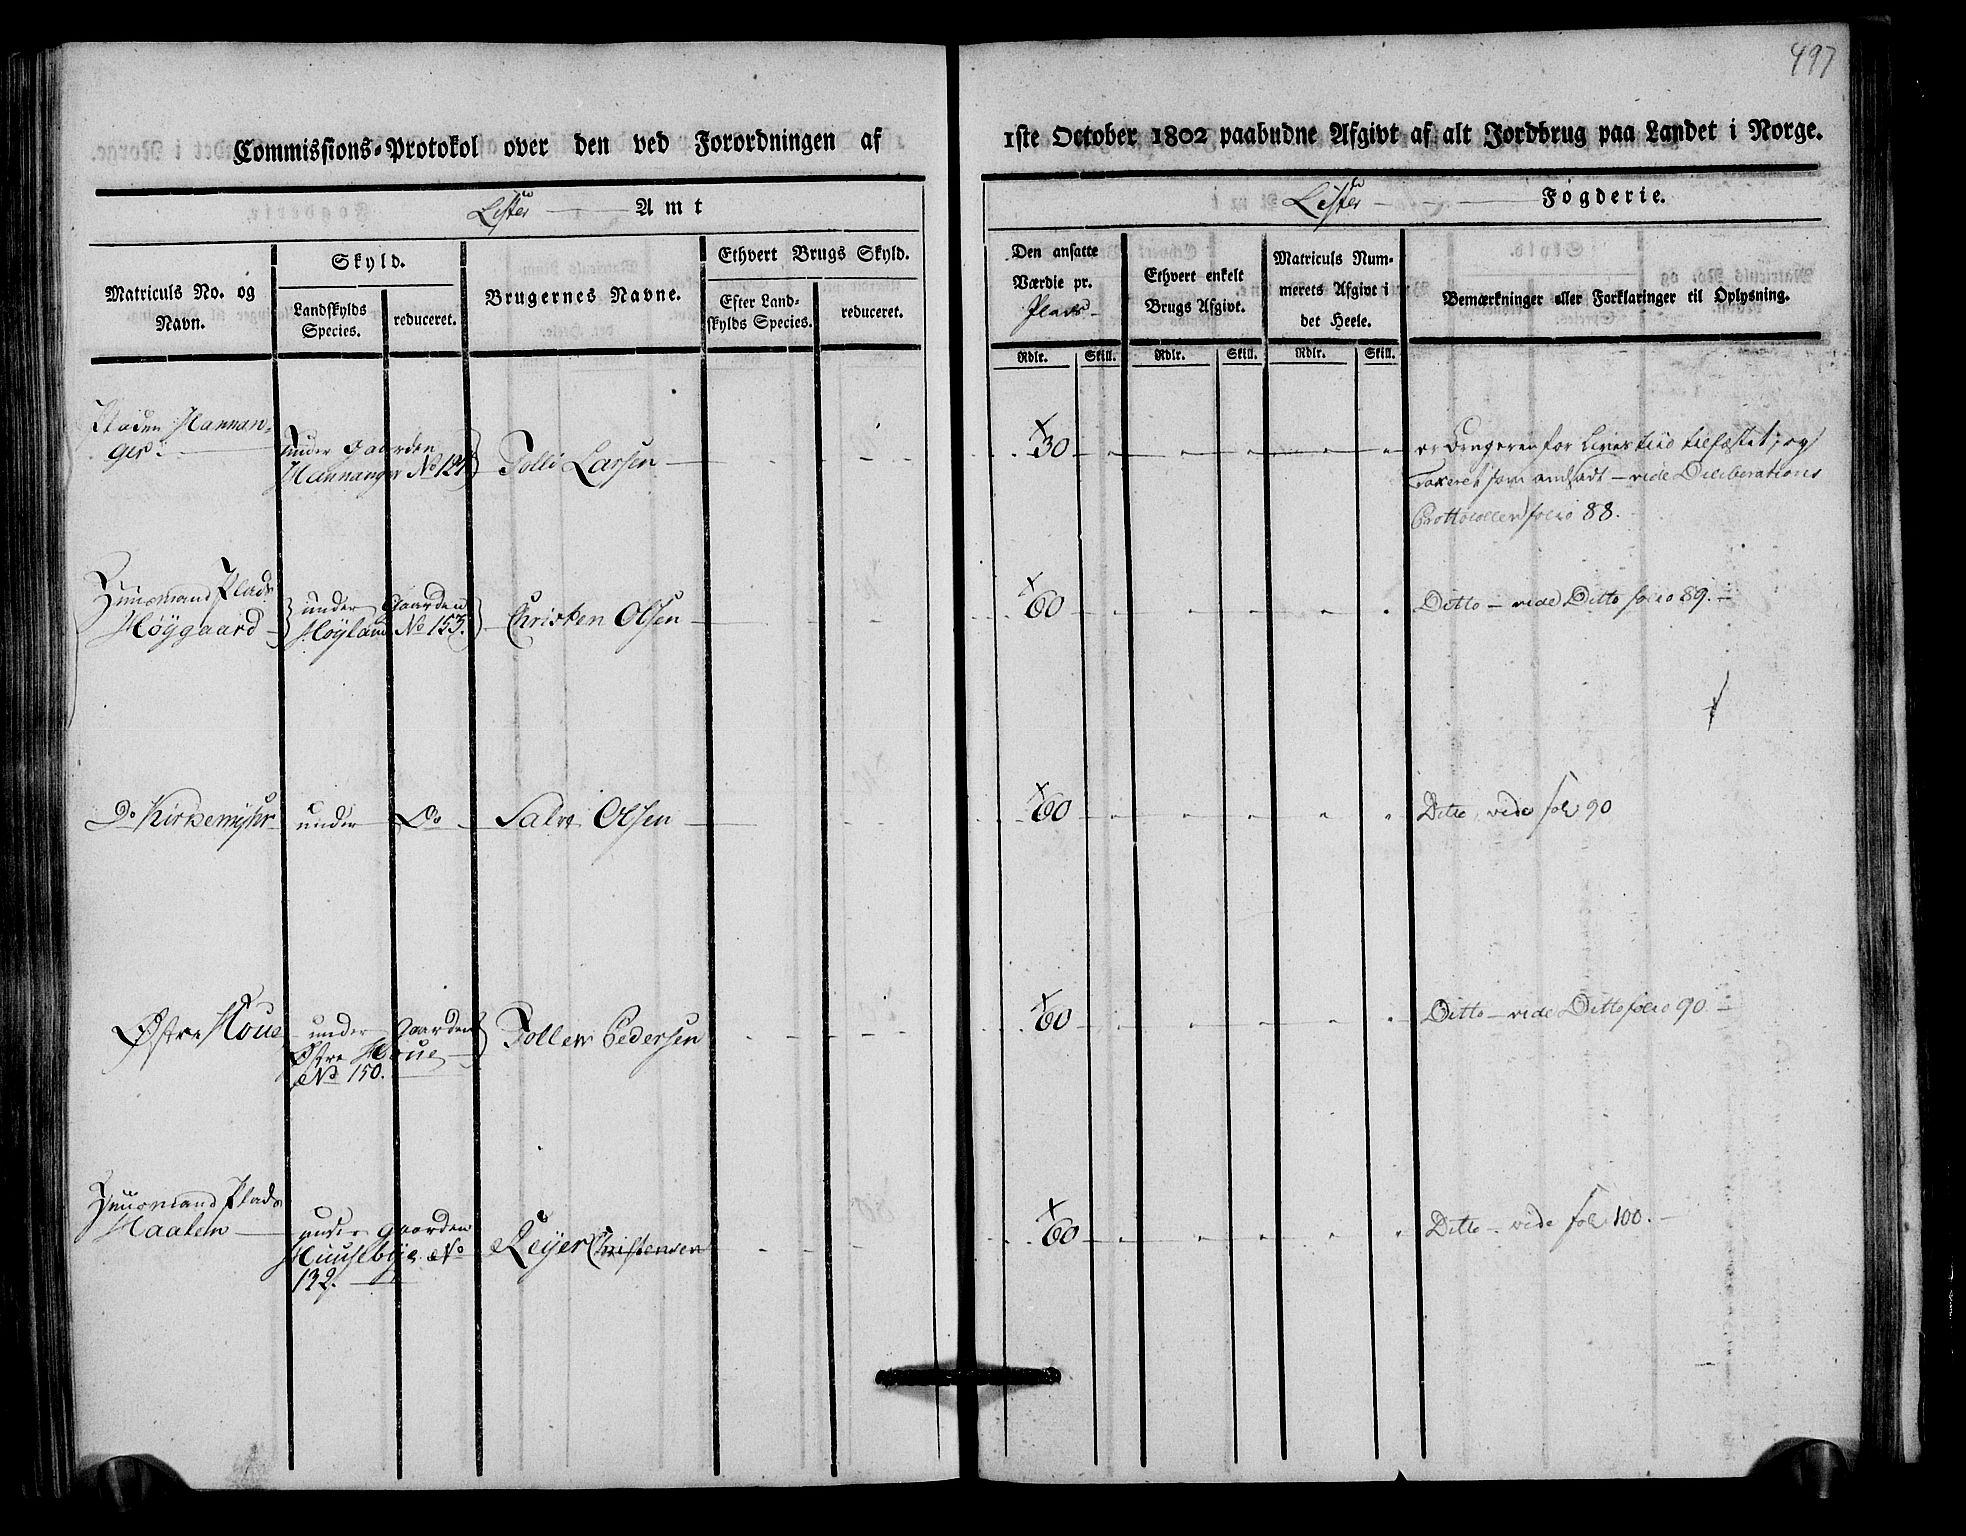 497
Commissions-Protokol over den ved Forordningen af
1ste October 1802 paabudne Afgivt af alt Jordbrug paa Landet i Norge.
Lister Amt
Lister Fogderie.
Matriculs No. og
Navn.
Skyld.
Landskylds
Species.
reduceret.
Brugernes Navne.
Ethvert Brugs Skyld.
Efter Land-
skylds Species.
reduceret.
Den ansatte
Værdie pr.
Plads
Ethvert enkelt
Brugs Afgivt.
Matriculs Num-
merets Afgivt i
det Heele.
Bemærkninger eller Forklaringer til Oplysning.
Rdlr. Skill. Rdlr. Skill. Rdlr. Skill.
Pladen Hannan-
ger
under Gaarden
Hannanger No 124
Tolli Larsen
30
er Brugeren for Livestiid tilfæstet, og
Taxeret som andsadt - vide Deliberations
Prottocollen folio 88.
Huusmand Plads
Høygaard
under Gaarden
Høyland No 153.
Christen Olsen
60
Ditto - vide Ditto folio 89.
Do Kirkemyhr
under Do
Salve Olsen
60
Ditto, vide fol 90
Østre Houe
under Gaarden
Østre Houe
No 150.
Tollew Pedersen
60
Ditto - vide Ditto folio 90
Huusmand Plads
Haalem
under Gaarden
Huusebye No
132.
Reijer Christensen
60
Ditto - vide fol. 100.